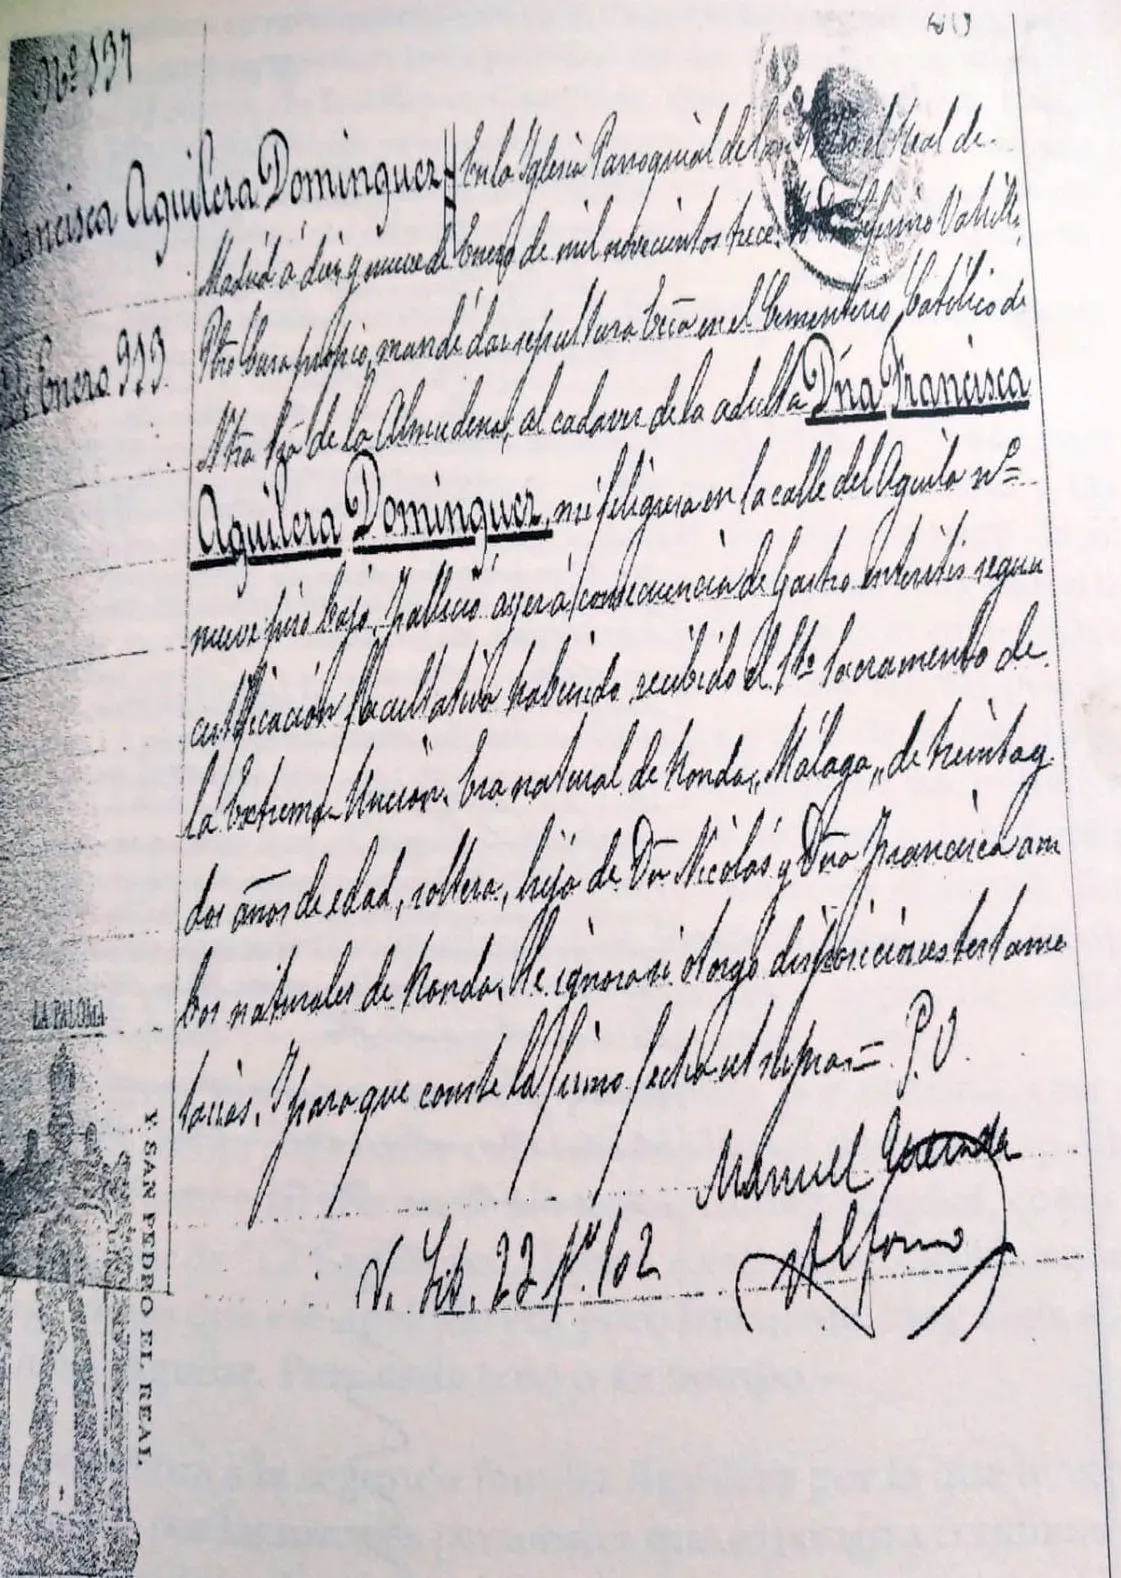 Nº 137
Francisca Aguilera Dominguez
Enero 913.
En la Iglesia Parroquial de San Pedro el Real de
Madrid á diez y nueve de Enero de mil novecientos trece. Yo
Cura propio, mandé dar sepultura ecca en el Cementerio Católico de
Ntra Sra de la Almudena, al cadaver de la adulta Dña Francisca
Aguilera Dominguez, mi feligresa en la calle del Aguila nº=
nueve piso bajo. Falleció ayer á consecuencia de Gastro enteritis segun
certificación facultativa habiendo recibido el Sto Sacramento de
la Extrema-Unción. Era natural de Ronda, "Málaga", de treinta y
dos años de edad, soltera, hija de Dn Nicolás y Dña Francisca am
bos naturales de Ronda. Se ignora si otorgó disposiciones testame
tarias. Y para que conste la firmo fecha ut supra.= P.O.
Manuel
Alfonso
V. Lib. 22 fº 102
LA PALOMA
Y SAN PEDRO EL REAL